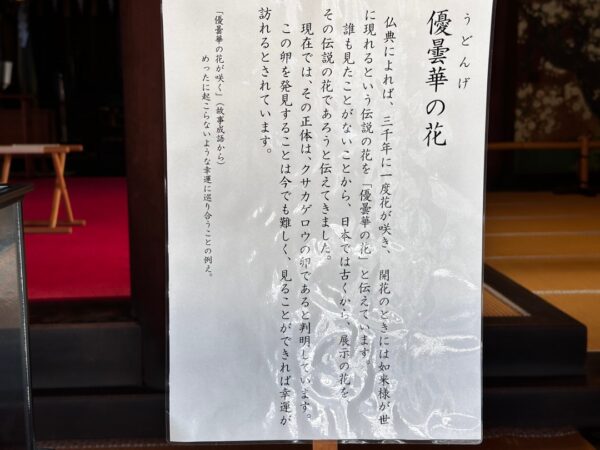 うどんげ
優曇華の花
仏典によれば、三千年に一度花が咲き、開花のときには如来様が世
に現れるという伝説の花を「優曇華の花」と伝えています。
誰も見たことがないことから、日本では古くから、展示の花を
その伝説の花であろうと伝えてきました。
現在では、その正体は、クサカゲロウの卵であると判明しています。
この卵を発見することは今でも難しく、見ることができれば幸運が
訪れるとされています。
「優曇華の花が咲く」(故事成語から)
めったに起こらないような幸運に巡り合うことの例え。